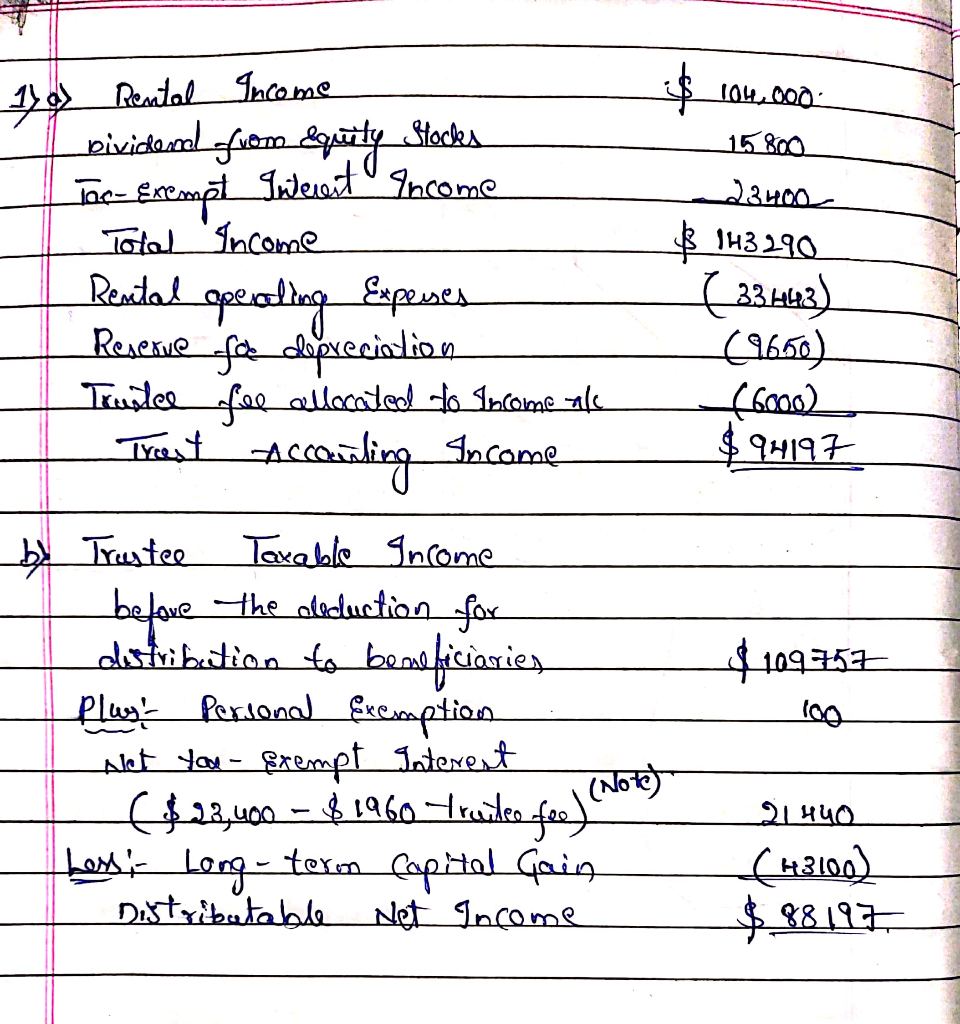 1) a) Rental Income $ 104,000
Dividend from Equity Stocks 15800
Tax-Exempt Interest Income 23400
Total Income $ 143290
Rental operating Expenses (33443)
Reserve for depreciation (9650)
Trustee fee allocated to Income a/c (6000)
Trust Accounting Income $ 94197
b) Trustee Taxable Income
before the deduction for
distribution to beneficiaries $ 109757
Plus:- Personal Exemption 100
Net tax-Exempt Interest
($ 23,400 - $ 1960 trustee fee) (Note) 21440
Less:- Long-term Capital Gain (43100)
Distributable Net Income $ 88197